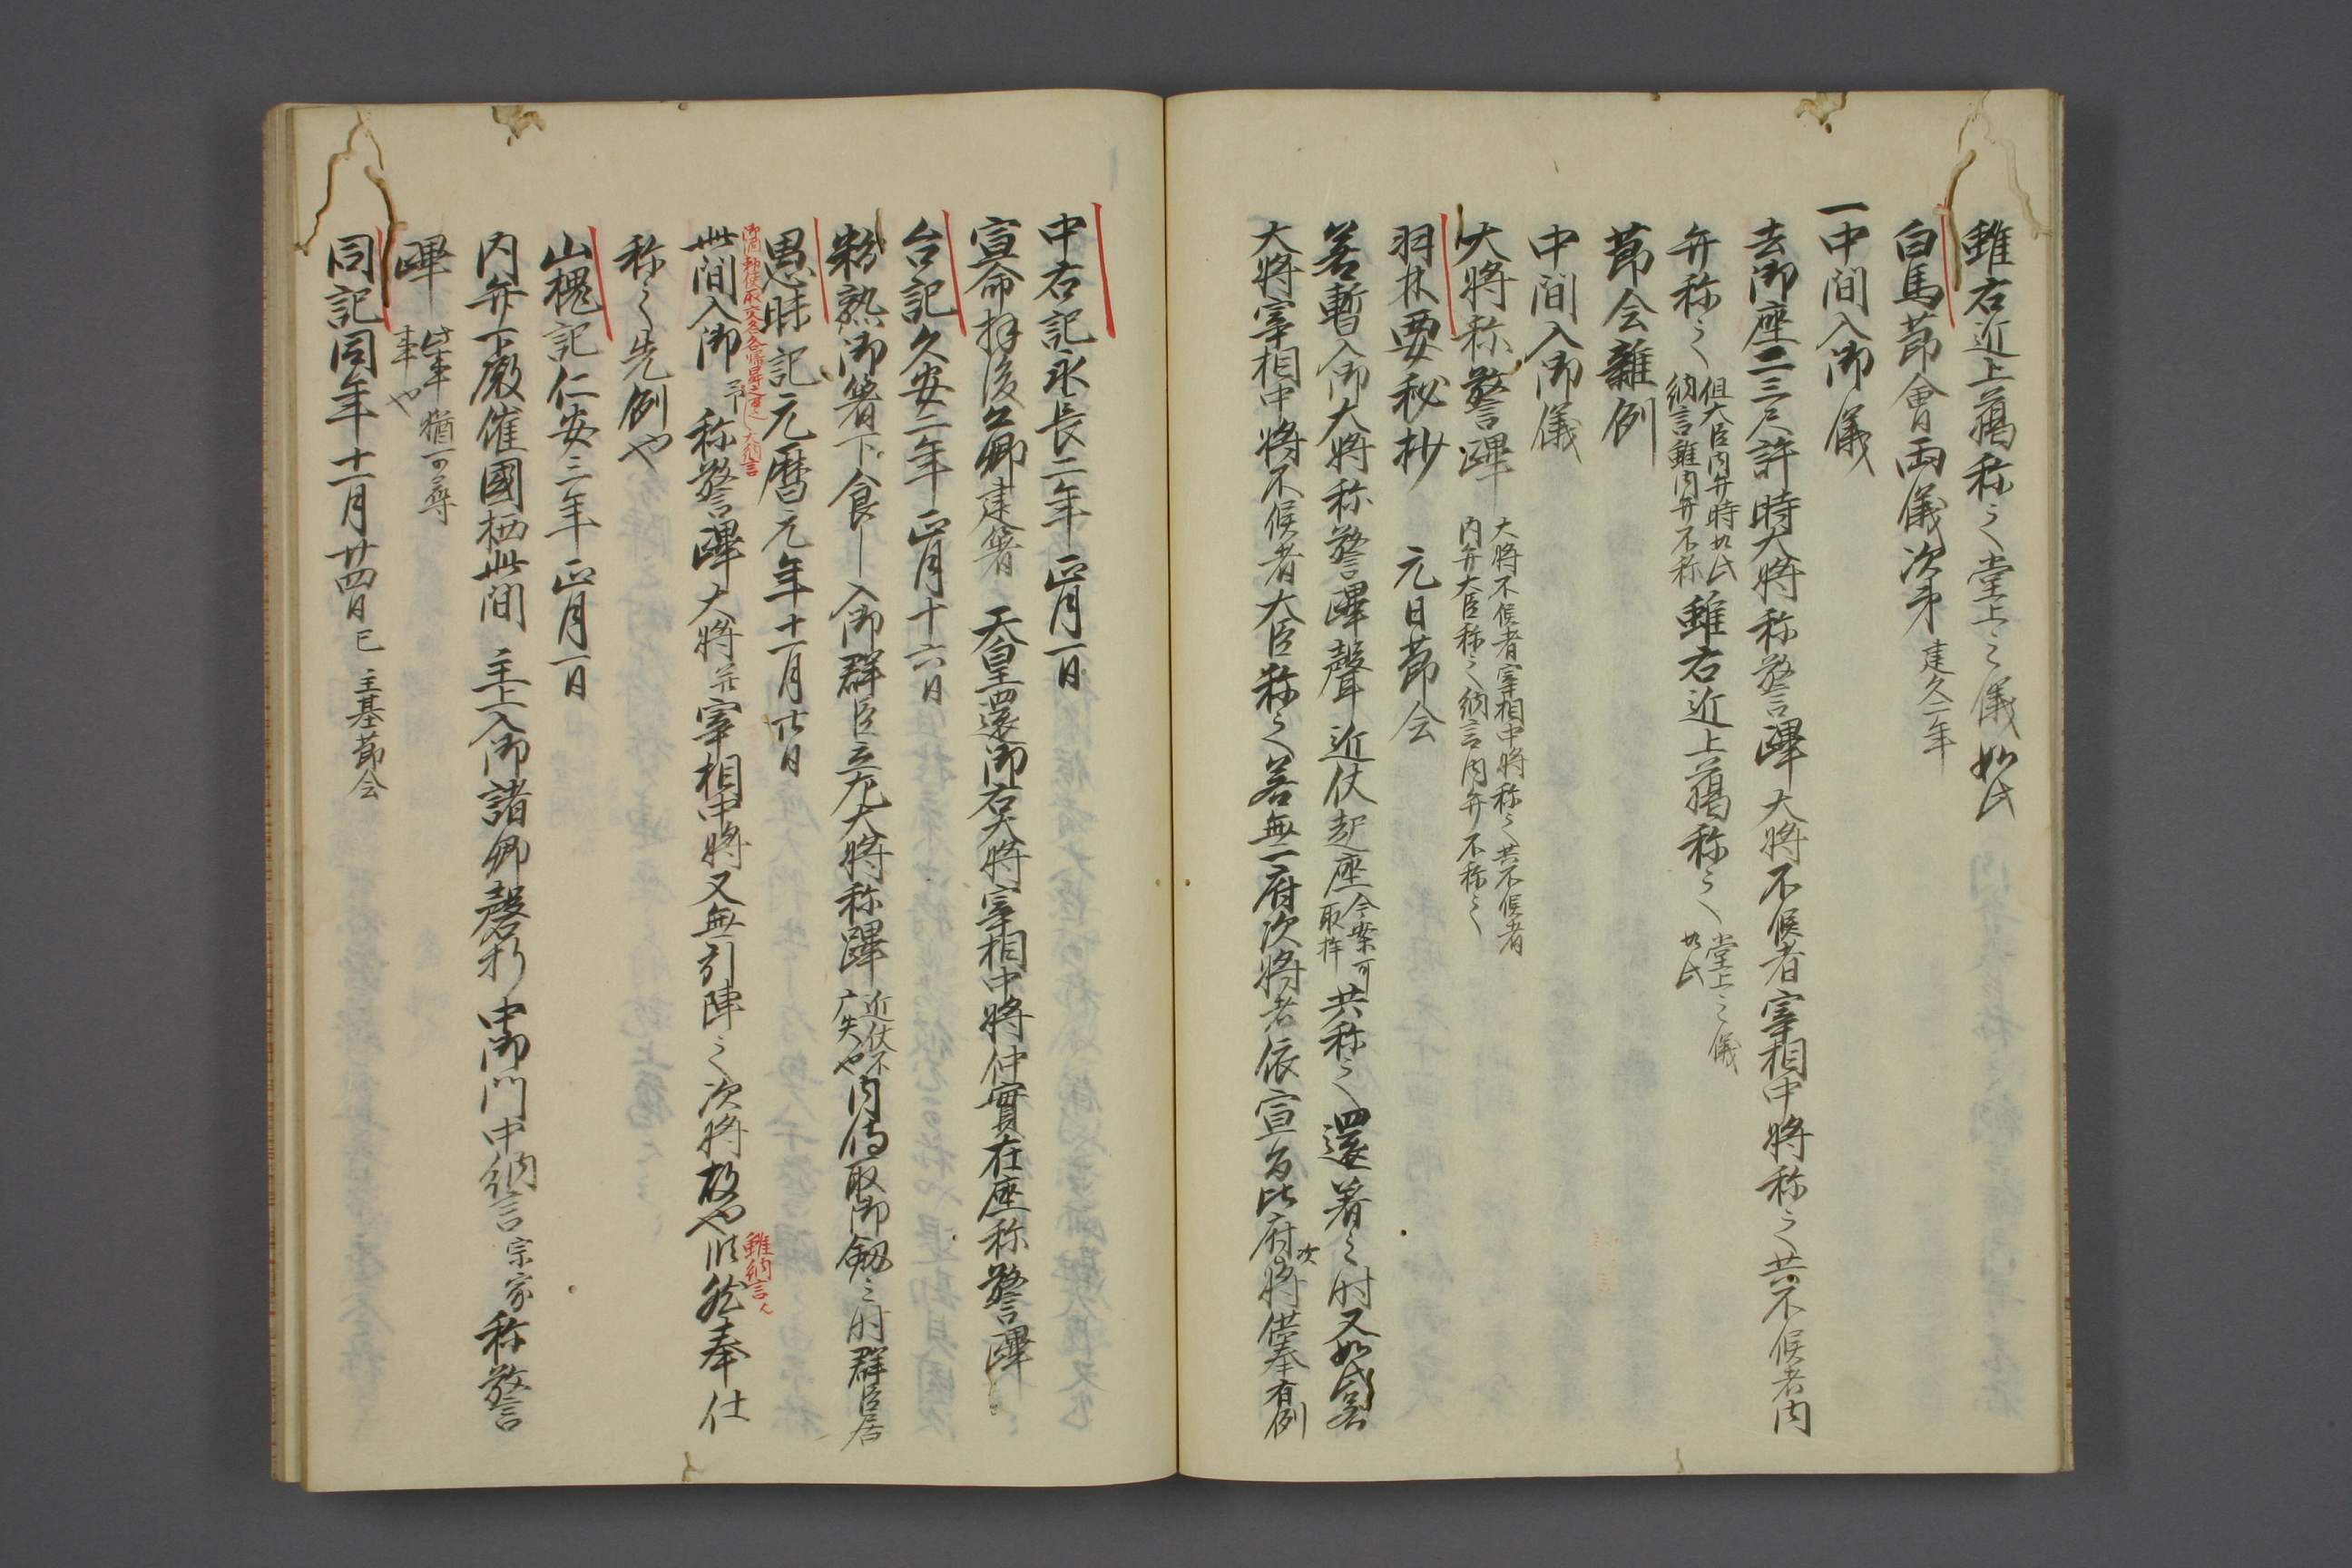 雖右近上﨟称之堂上之儀如此
白馬節會両儀次第 建久二年
一中間入御儀
去御座二三尺許時大将称警蹕大将不候者宰相中将称之共不候者内
弁称之 但大臣内弁時如此
納言雖内弁不称
雖右近上﨟称之 堂上之儀
如此
節会雑例
中間入御儀
大将称警蹕 大将不候者宰相中将称之共不候者
内弁大臣称之納言内弁不称之
羽林要秘抄 元日節会
若暫入御大将称警蹕聲近仗起座 今案可
取拝
共称之還著之時又如此若
大将宰相中将不候者大臣称之若無一府次将者依宣旨比府次将供奉有例
中右記永長二年正月一日
宣命拝後公卿建箸 天皇還御右大将宰相中将仲實在座称警蹕
台記久安二年正月十六日
粉熟御箸下食入御群臣立左大将称蹕 近仗不
立失也
内侍取御劔之时群臣居
愚昧記元暦元年十一月廿日
此間入御 予称警蹕大将并宰相中将又無引陣之次将故也
雖納言
奉仕
称之先例也
山槐記仁安三年正月一日
内弁下殿催國栖此間 主上入御諸卿磬折中御門中納言宗家称警
蹕 此事猶可尋
事也
同記同年十一月廿四日 己 主基節会